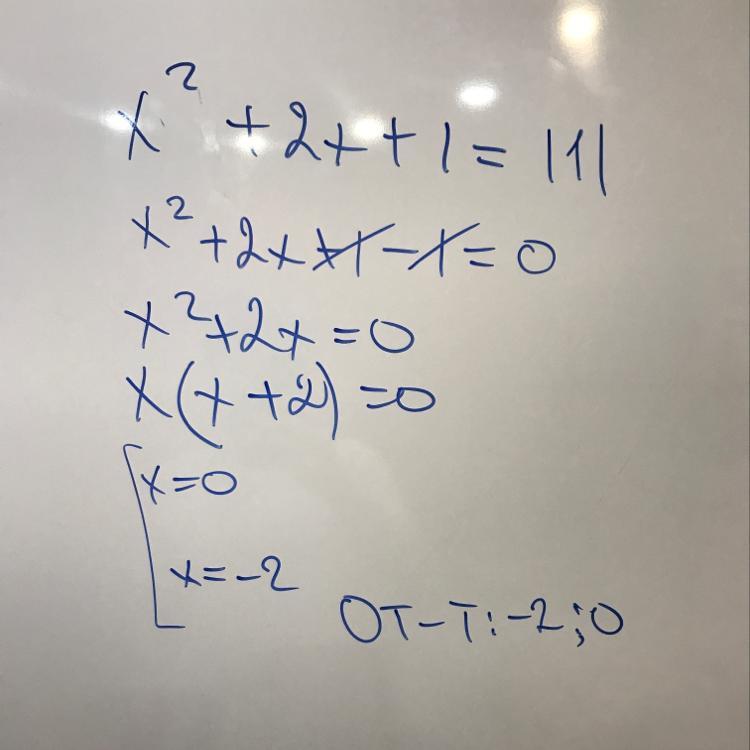 x² + 2x + 1 = |1|
x² + 2x + 1 - 1 = 0
x² + 2x = 0
x(x + 2) = 0
x = 0
x = -2
От-т: -2; 0